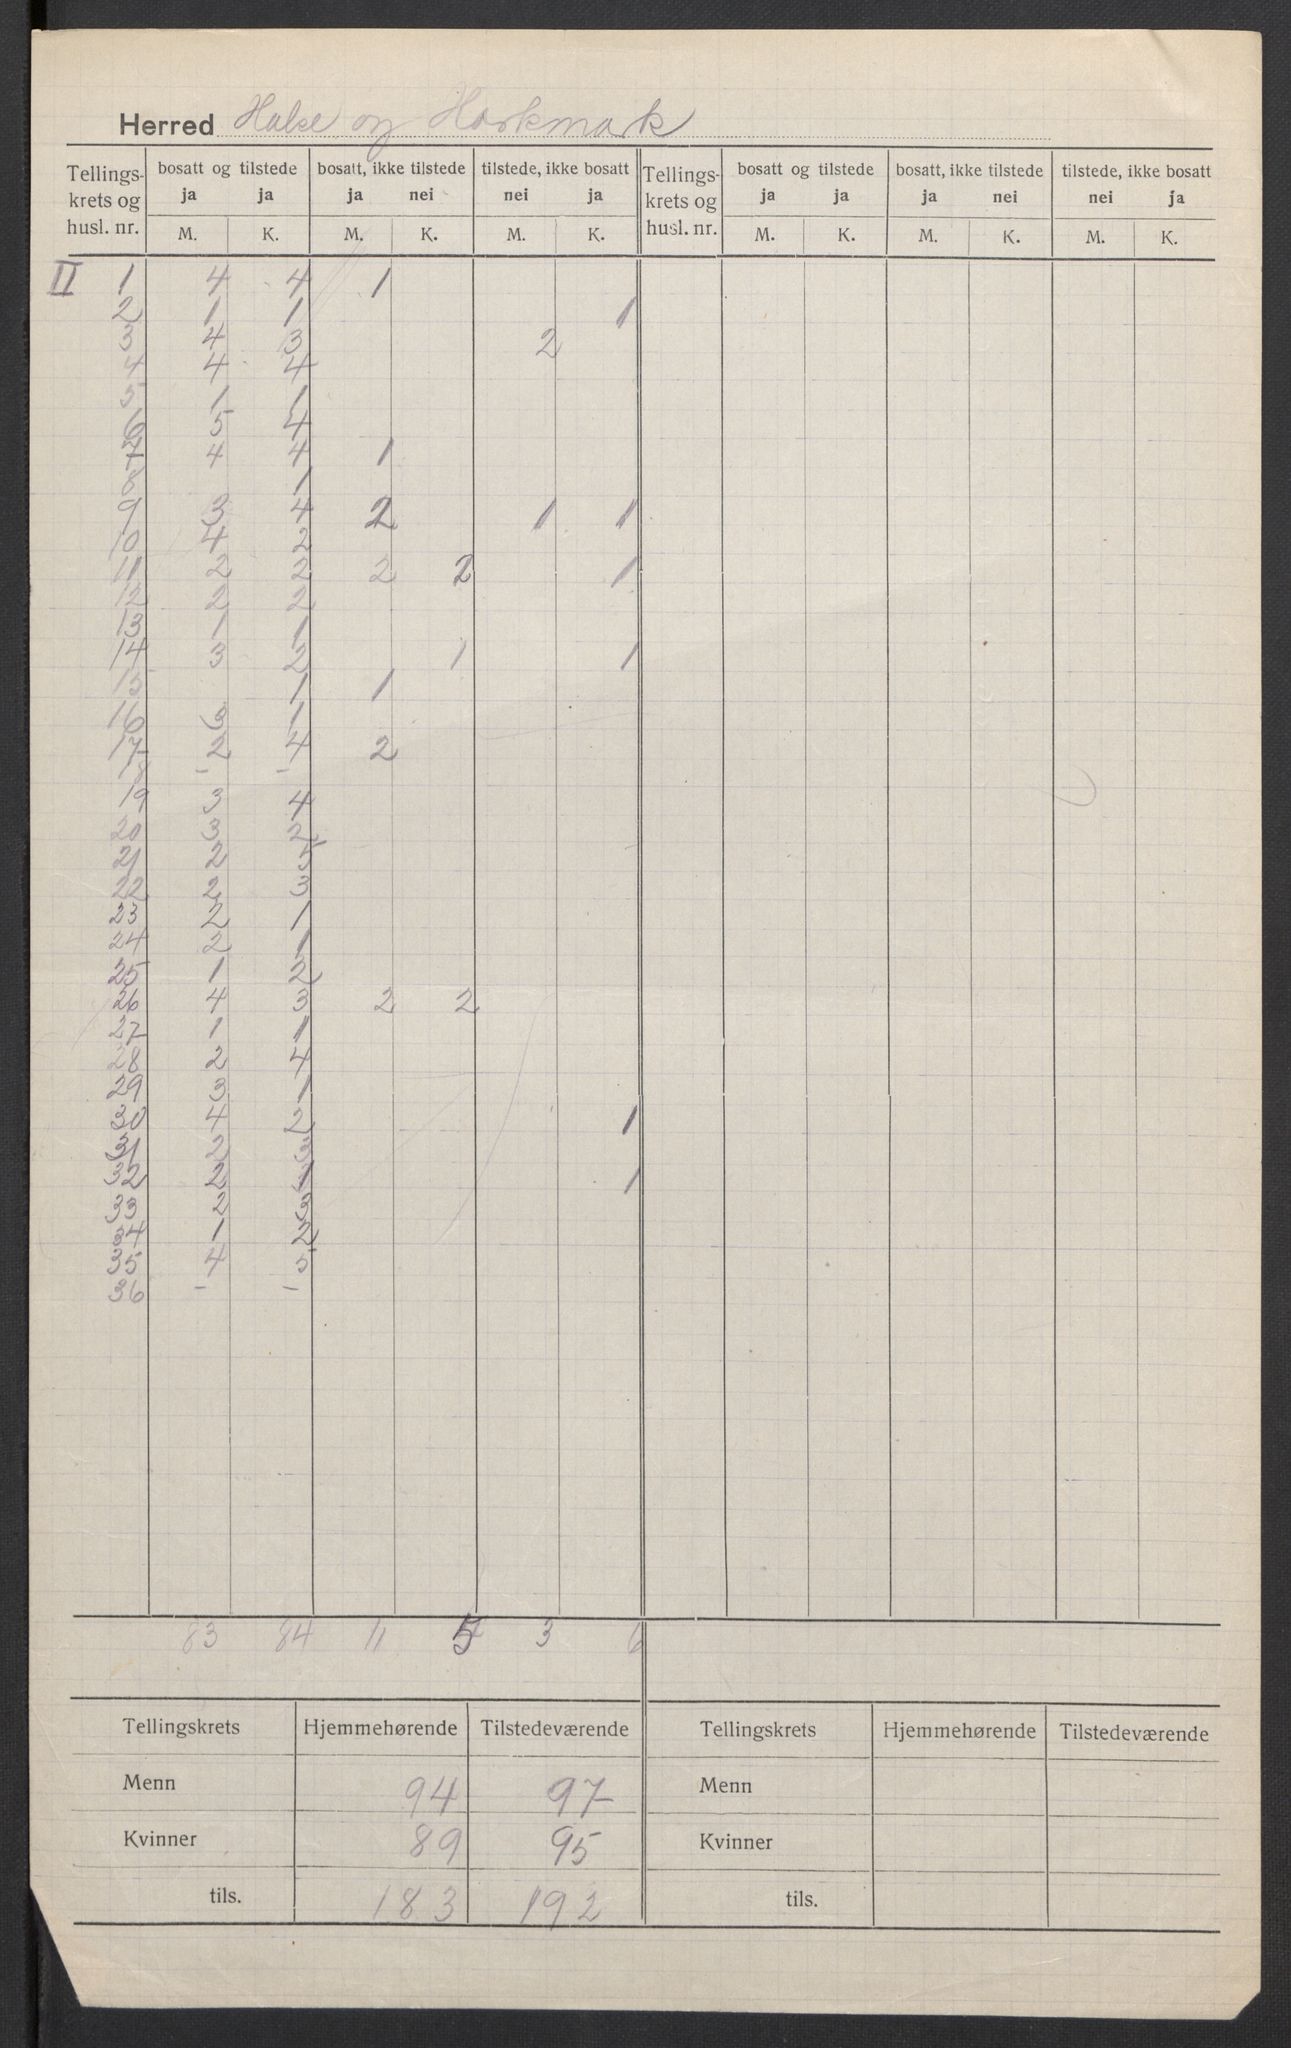 Herred Halse og Harkmark
Tellings- krets og husl. nr. | bosatt og tilstede ja ja | bosatt, ikke tilstede ja nei | tilstede, ikke bosatt nei ja | Tellings- krets og husl. nr. | bosatt og tilstede ja ja | bosatt, ikke tilstede ja nei | tilstede, ikke bosatt nei ja
M. K. M. K. M. K. M. K. M. K. M. K.
II 1 4 4 1
2 1 1 1
3 4 3 2
4 4 4
5 1 1
6 5 4
7 4 4 1
8 1
9 3 4 2 1 1
10 4 2
11 2 2 2 2 1
12 2 2
13 1 1
14 3 2 1 1
15 1 1
16 3 1
17 2 4 2
18 - -
19 3 4
20 3 2
21 2 5
22 2 3
23 2 1
24 2 1
25 1 2
26 4 3 2 2
27 1 1
28 2 4
29 3 1
30 4 2 1
31 2 3
32 2 1 1
33 2 3
34 1 2
35 4 5
36 - -
83 84 11 5 3 6
Tellingskrets Hjemmehørende Tilstedeværende Tellingskrets Hjemmehørende Tilstedeværende
Menn 94 97 Menn
Kvinner 89 95 Kvinner
tils. 183 192 tils.